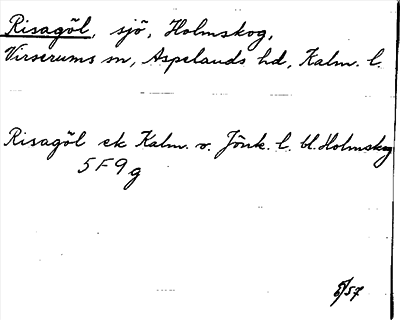 Risagöl, sjö, Holmskog,
Virserums sn, Aspelands hd, Kalm. l.
Risagöl ek Kalm. v. Jönk. l. bl. Holmskog
5F9g
5/57